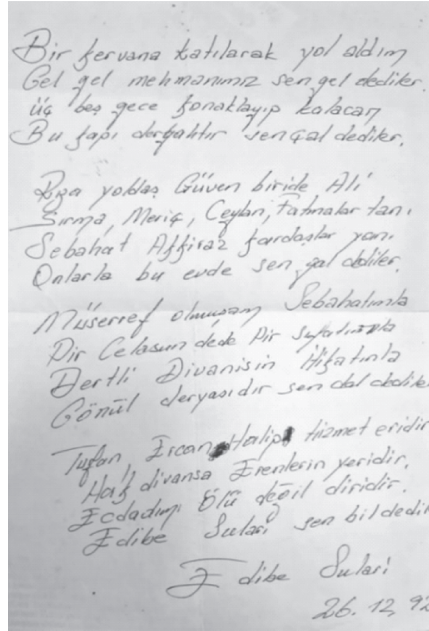 Bir kervana katılarak yol aldım
Gel gel mehmanımız sen gel dediler.
üç beş gece konaklayıp kalacan
Bu kapı dergahtır sen çal dediler.
Rıza yoldaş Güven biride Ali
Sırma, Meriç, Ceylan, Fatmalar
Sebahat Akkiraz kardaşlar yanı
Onlarla bu evde sen gal dediler.
Müşerref olmuşam Sebahatımla
Pir Celasun dede Pir
Dertli Divanisin
Gönül deryasıdır sen dal dediler
Tufan Ercan Halip hizmet eridir
Halk divansa Erenlerin yeridir.
Ecdadımı ölü değil diridir.
Edibe Sulari sen bil dedil
Edibe Sulari
26.12.92